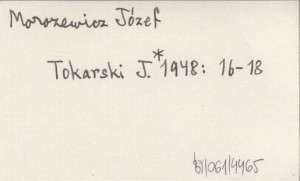 Morozewicz Józef
Tokarski J.* 1948: 16-18